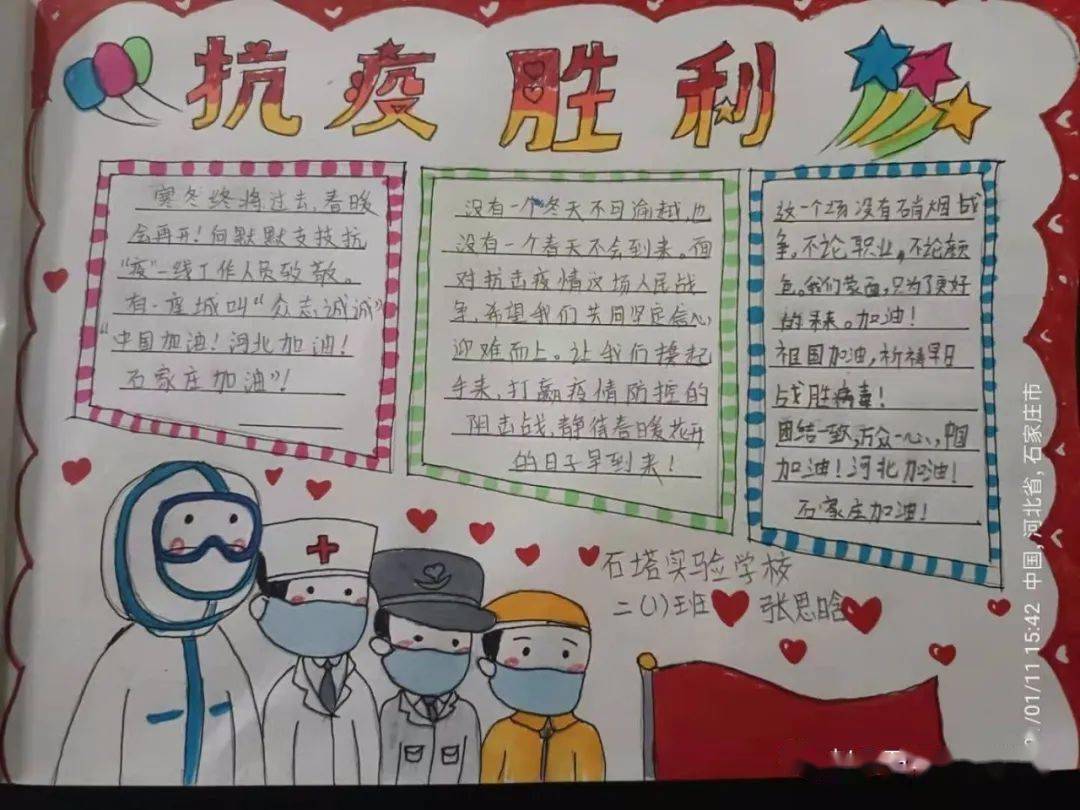 抗疫胜利
寒冬终将过去,春暖
会再开!向默默支技抗
“疫”一线工作人员致敬。
有一座城叫“众志诚诚”
“中国加油!河北加油!
石家庄加油”!
没有一个冬天不可逾越,也
没有一个春天不会到来。面
对抗击疫情这场人民战
争,希望我们共同坚定信心
迎难而上。让我们撸起
手来,打赢疫情防控的
阴击战,静待春暖花开
的日子早到来!
这一个场没有硝烟战
争。不论职业,不论颜
色。我们蒙面,只为了更好
的未来。加油!
祖国加油,祈祷早日
战胜病毒!
团结一致,万众一心,中国
加油!河北加油!
石家庄加油!
石塔实验学校
二(1)班 张思晗
/01/11 15:42 中国,河北省,石家庄市